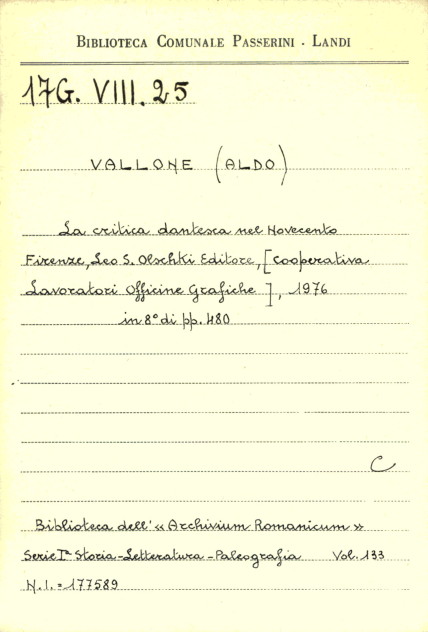 BIBLIOTECA COMUNALE PASSERINI - LANDI
17G. VIII. 25
VALLONE (ALDO)
La critica dantesca nel Novecento
Firenze, Leo S. Olschki Editore, [Cooperativa
Lavoratori Officine Grafiche], 1976
in 8° di pp. 480
C
Biblioteca dell'« Archivium Romanicum »
Serie Iª Storia-Letteratura-Paleografia Vol. 133
N.I. = 177589